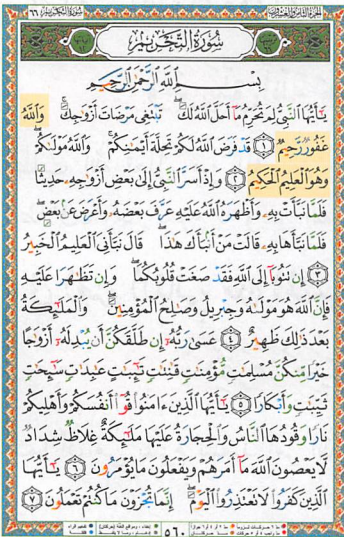 سُورَةُ التَّحْرِيمِ
بِسْمِ اللَّهِ الرَّحْمَٰنِ الرَّحِيمِ
يَٰٓأَيُّهَا ٱلنَّبِيُّ لِمَ تُحَرِّمُ مَآ أَحَلَّ ٱللَّهُ لَكَۖ تَبْتَغِي مَرْضَاتَ أَزْوَٰجِكَۚ وَٱللَّهُ
غَفُورٌ رَّحِيمٌ ١ قَدْ فَرَضَ ٱللَّهُ لَكُمْ تَحِلَّةَ أَيْمَٰنِكُمْۚ وَٱللَّهُ مَوْلَىٰكُمْۖ
وَهُوَ ٱلْعَلِيمُ ٱلْحَكِيمُ ٢ وَإِذْ أَسَرَّ ٱلنَّبِيُّ إِلَىٰ بَعْضِ أَزْوَٰجِهِۦ حَدِيثًا
فَلَمَّا نَبَّأَتْ بِهِۦ وَأَظْهَرَهُ ٱللَّهُ عَلَيْهِ عَرَّفَ بَعْضَهُۥ وَأَعْرَضَ عَنۢ بَعْضٍۖ
فَلَمَّا نَبَّأَهَا بِهِۦ قَالَتْ مَنْ أَنۢبَأَكَ هَٰذَاۖ قَالَ نَبَّأَنِيَ ٱلْعَلِيمُ ٱلْخَبِيرُ
٣ إِن تَتُوبَآ إِلَى ٱللَّهِ فَقَدْ صَغَتْ قُلُوبُكُمَاۖ وَإِن تَظَٰهَرَا عَلَيْهِ
فَإِنَّ ٱللَّهَ هُوَ مَوْلَىٰهُ وَجِبْرِيلُ وَصَٰلِحُ ٱلْمُؤْمِنِينَۖ وَٱلْمَلَٰٓئِكَةُ
بَعْدَ ذَٰلِكَ ظَهِيرٌ ٤ عَسَىٰ رَبُّهُۥٓ إِن طَلَّقَكُنَّ أَن يُبْدِلَهُۥٓ أَزْوَٰجًا
خَيْرًا مِّنكُنَّ مُسْلِمَٰتٍ مُّؤْمِنَٰتٍ قَٰنِتَٰتٍ تَٰٓئِبَٰتٍ عَٰبِدَٰتٍ سَٰٓئِحَٰتٍ
ثَيِّبَٰتٍ وَأَبْكَارًا ٥ يَٰٓأَيُّهَا ٱلَّذِينَ ءَامَنُوا۟ قُوٓا۟ أَنفُسَكُمْ وَأَهْلِيكُمْ
نَارًا وَقُودُهَا ٱلنَّاسُ وَٱلْحِجَارَةُ عَلَيْهَا مَلَٰٓئِكَةٌ غِلَاظٌ شِدَادٌ
لَّا يَعْصُونَ ٱللَّهَ مَآ أَمَرَهُمْ وَيَفْعَلُونَ مَا يُؤْمَرُونَ ٦ يَٰٓأَيُّهَا
ٱلَّذِينَ كَفَرُوا۟ لَا تَعْتَذِرُوا۟ ٱلْيَوْمَۖ إِنَّمَا تُجْزَوْنَ مَا كُنتُمْ تَعْمَلُونَ ٧
٥٦٠